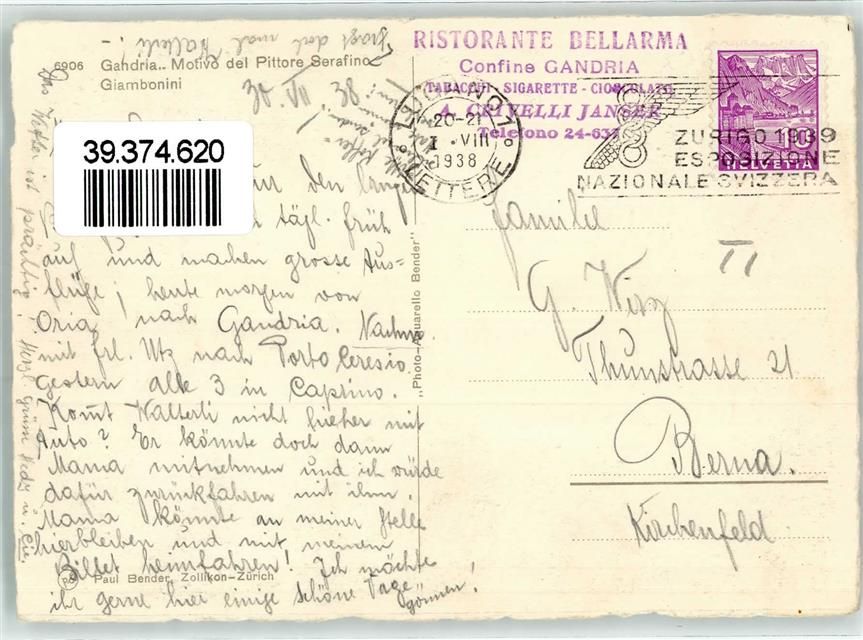 Fragt doch mal Walterli! –
6906 Gandria.. Motivo del Pittore Serafino
Giambonini
30. VII 38
39.374.620
für den
tägl. früh
auf und machen grosse Aus-
flüge; heute morgen von
Oria nach Gandria. Nachm.
mit Frl. Utz nach Porto Ceresio.
Gestern alle 3 in Caprino.
Komt Walterli nicht hieher mit
Auto? Er könnte doch dann
Mama mitnehmen und ich würde
dafür zurückfahren mit ihm.
Mama könnte an meiner Stelle
hierbleiben und mit meinem
Billet heimfahren! Ich möchte
ihr gerne hier einige schöne Tage
gönnen!
Paul Bender, Zollikon-Zürich
Das Wetter ist prächtig! Herzl. Grüsse Hedi u.
"Photo-Aquarello Bender"
RISTORANTE BELLARMA
Confine GANDRIA
TABACCHI - SIGARETTE - CIOCCOLATO
A. CRIVELLI JANSER
Telefono 24-637
LUGANO 1
20-21
1. VIII
1938
LETTERE
ZURIGO 1939
ESPOSIZIONE
NAZIONALE SVIZZERA
10
HELVETIA
Familie
G. Wirz
Thunstrasse 21
Berna.
Kirchenfeld